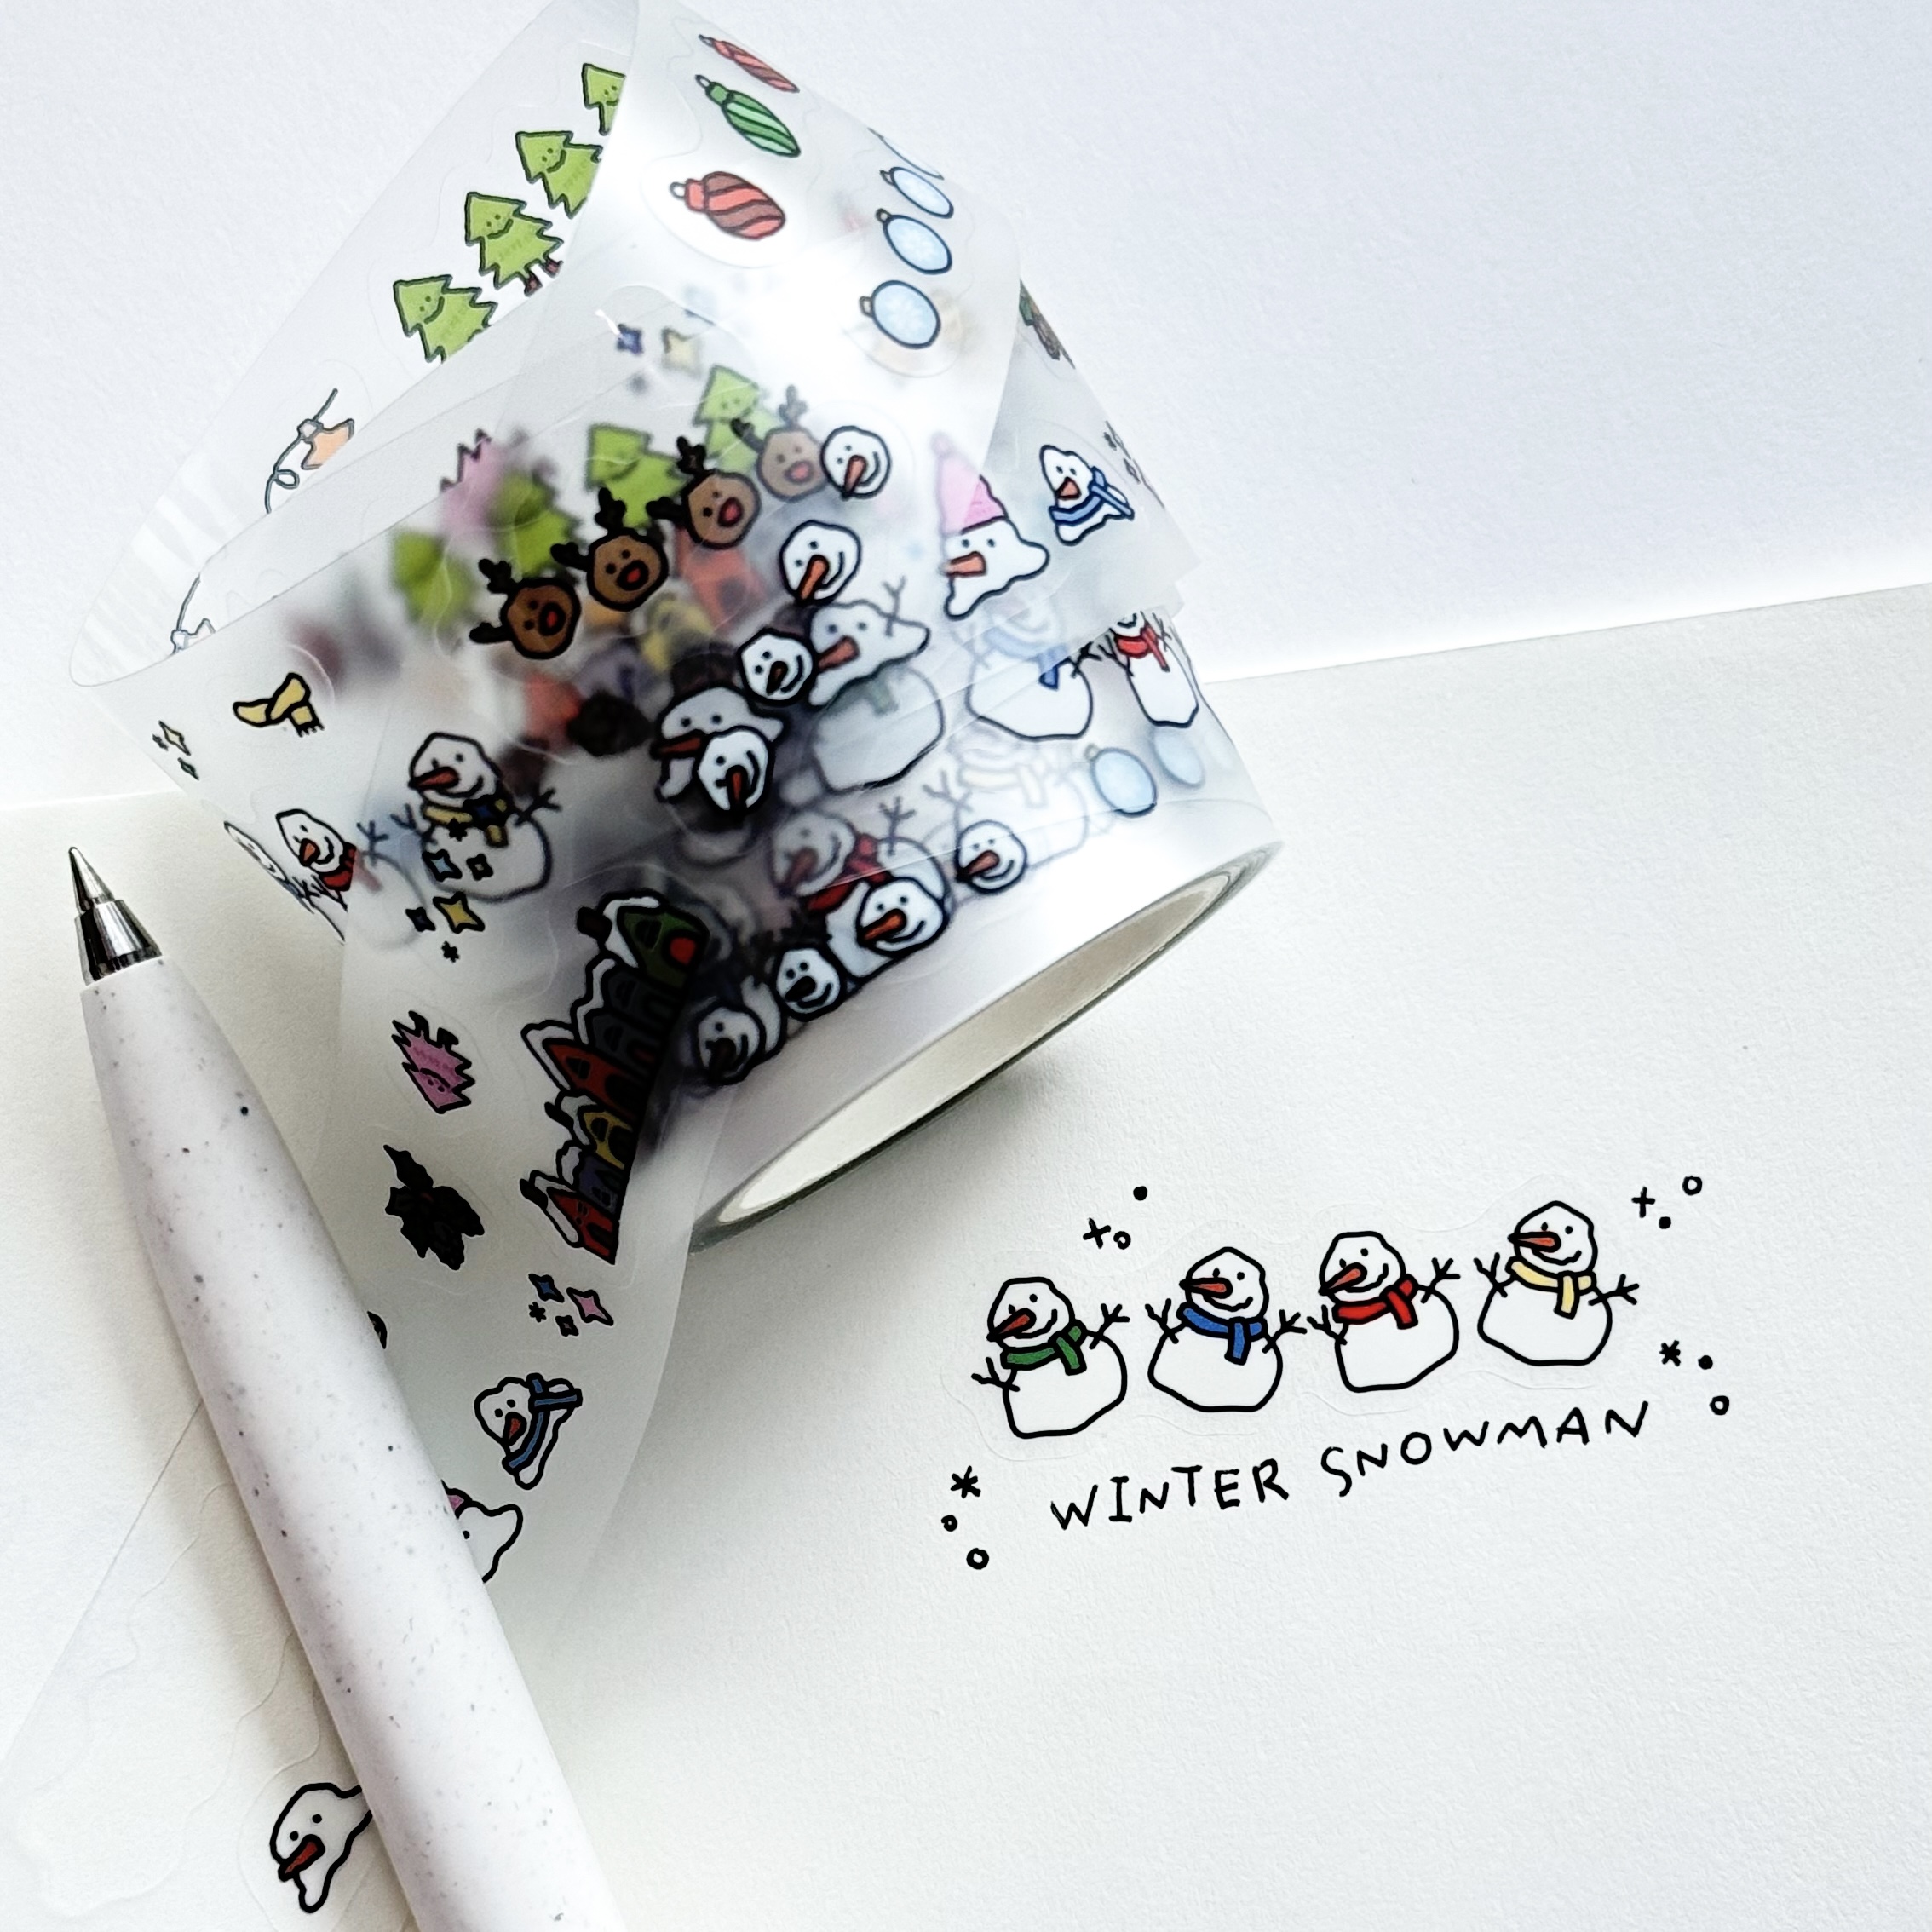 WINTER SNOWMAN